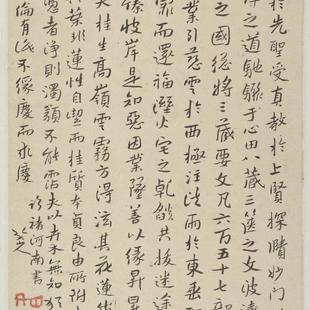 於先聖受真教於上賢探賾妙門
之道馳驟於心田八藏三篋之文波濤
之國總將三藏要文凡六百五十七部
業引慈雲於西極注法雨於東垂
罪而還福濕火宅之乾燄共拔迷途
臻彼岸是知惡因業墜善以緣昇昇
夫桂生高嶺雲露方得泫其花蓮出
葉非蓮性自潔而桂質本貞良由所附
憑者淨則濁類不能霑夫以卉木無知猶
倫有識不緣慶而求慶
臨褚河南書
八大山人